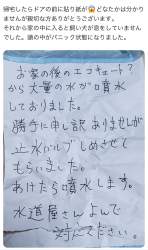 帰宅したらドアの前に貼り紙が😱どなたかは分かり
ませんが親切な方ありがとうございます。
それから家の中に入ると飼い犬が息をしていません
でした。頭の中がパニック状態になりました。
お家の後のエコキュート？
から大量の水が噴水
しておりました。
勝手に申し訳ありませんが
止水バルブしめさせて
もらいました。
あけたら噴水します。
水道屋さんよんで
対応してください。